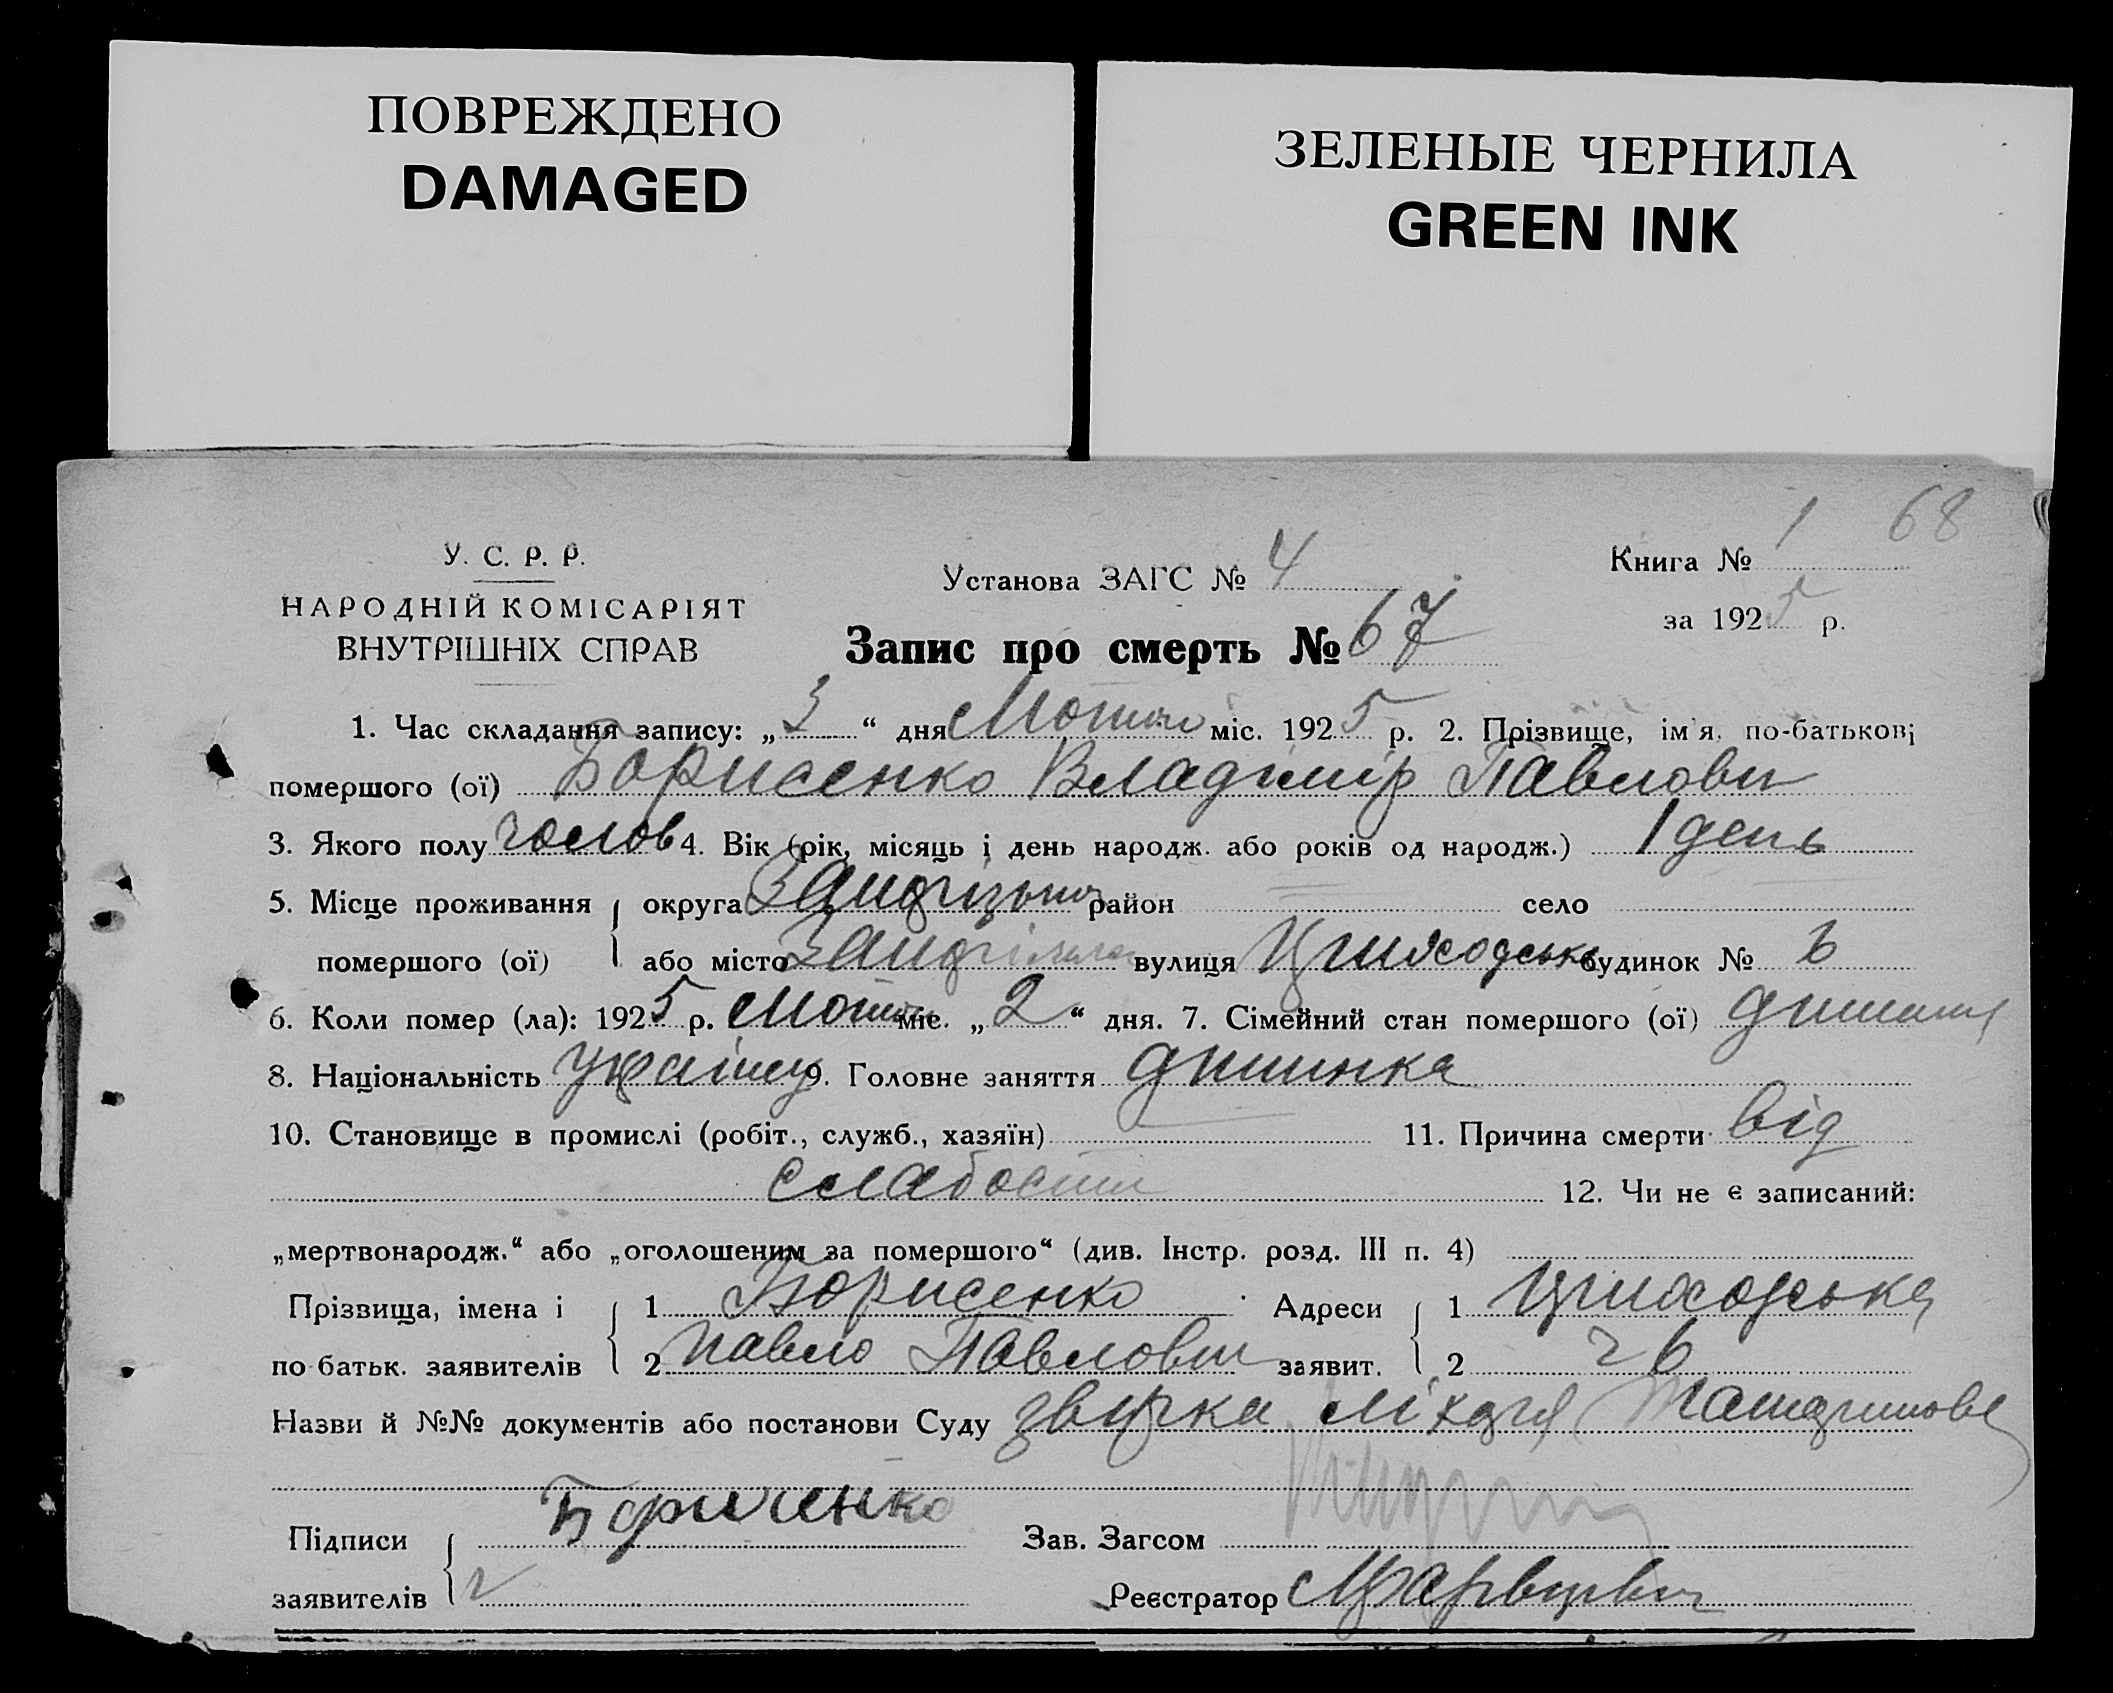 ПОВРЕЖДЕНО
DAMAGED
ЗЕЛЕНЫЕ ЧЕРНИЛА
GREEN INK
68
У. С. Р. Р.
НАРОДНІЙ КОМІСАРІЯТ
ВНУТРІШНІХ СПРАВ
Установа ЗАГС № 4
Книга № 1
за 1925 р.
Запис про смерть № 67
1. Час складання запису: „3“ дня міс. 1925 р. 2. Прізвище, ім'я, по-батькові
помершого (ої) Борисенко Владімір Павлович
3. Якого полу чолов 4. Вік (рік, місяць і день народж. або років од народж.) 1 день
5. Місце проживання округа район село
помершого (ої) або місто вулиця будинок № 6
6. Коли помер (ла): 1925 р. міс. „2“ дня. 7. Сімейний стан помершого (ої) дитина
8. Національність українц 9. Головне заняття дитинка
10. Становище в промислі (робіт., служб., хазяїн) 11. Причина смерти від
слабости 12. Чи не є записаний:
„мертвонародж.“ або „оголошеним за помершого“ (див. Інстр. розд. III п. 4)
Прізвища, імена і 1 Борисенко Адреси 1
по батьк. заявителів 2 Павло Павлович заявит. 2 ч 6
Назви й №№ документів або постанови Суду
Підписи Борисенко Зав. Загсом
заявителів Реєстратор